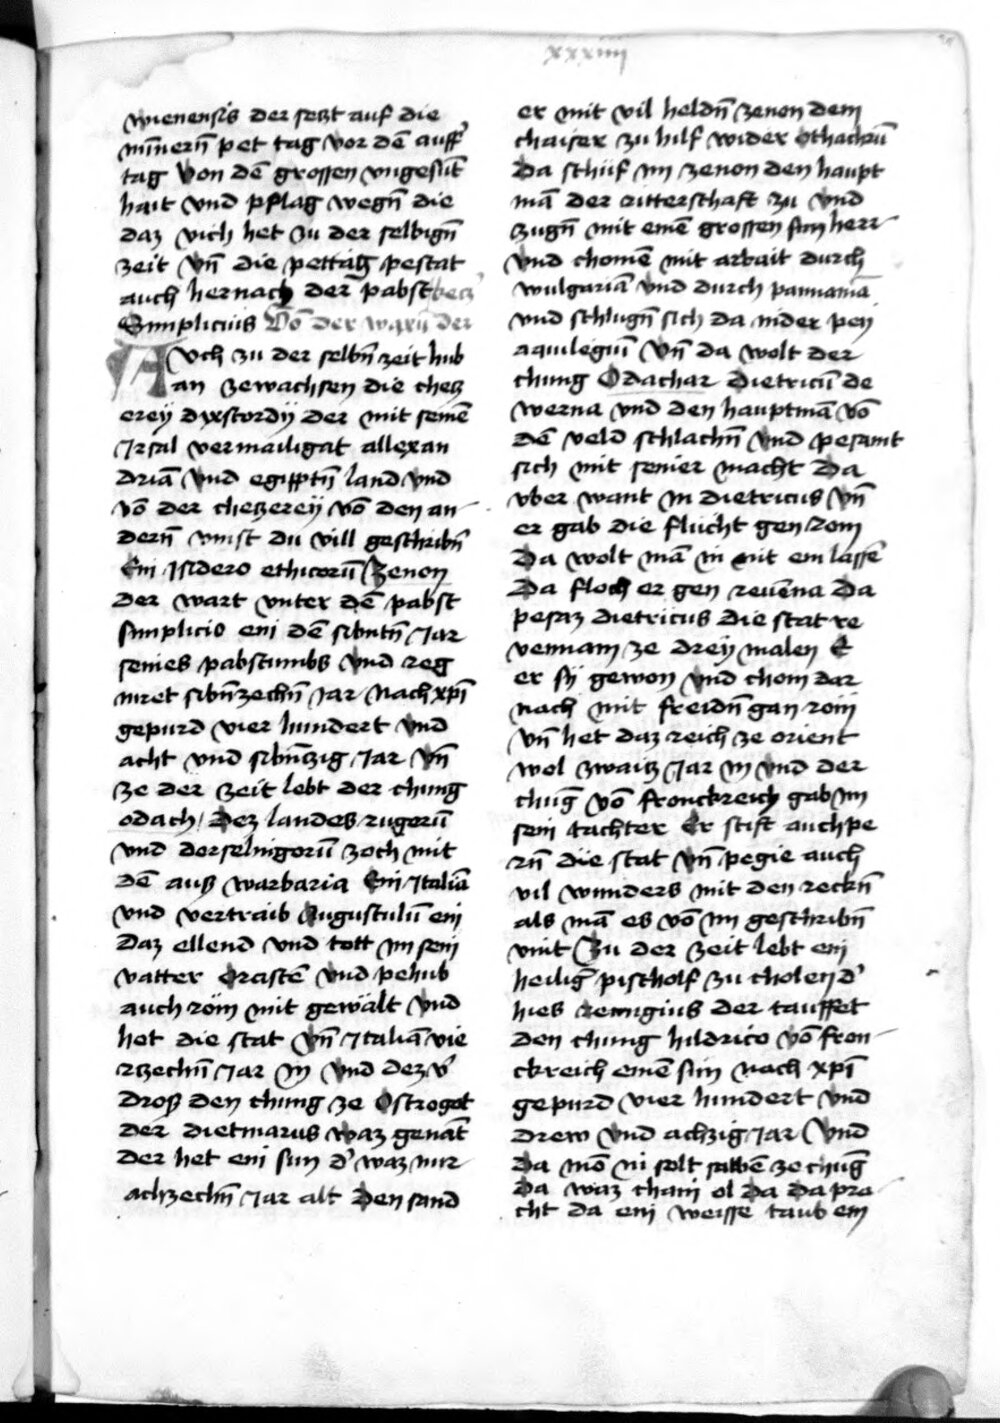 xxxiiij
wienensis der seczt auf die
mīnerñ pet tag vor dē auff
tag Von dē grossen vngesūt
hait vnd pflag wegñ die
daz vich het zu der selbigñ
zeit Vñ die pettäg pestat
auch hernach der pabst
Simplicius Vō der
AVch zu der selbñ zeit hub
an zewachsen die checz
ereÿ der mit seinē
Jrsal vermailigat allexan
driā vnd egipptñ land vnd
vō der checzereÿ vō den an
derñ vinst du vill geschribñ
Ein Jsidero ethicorū Zenon
der wart vnter dē pabst
simplicio ein dē sibntñ Jar
seines pabstumbs vnd reg
niret sibñzechñ Jar Nach xpī
gepurd vier hundert vnd
acht vnd sibñzig Jar Vñ
ze der zeit lebt der chung
odach / Dez landes rugerū
vnd zoch mit
dē auß warbaria Ein Jtaliā
vnd vertraib Augustulū ein
daz ellend vnd tott im sein
vatter Orastē vnd pehub
auch röm mit gewält vnd
het die stat Vñ Jtaliā vie
rzechñ Jar in vnd dez v
droß den chung ze Ostrogot
der dietmarus waz genāt
der het ein sun d' waz nur
achzechñ Jar alt Den sand
er mit vil heldñ zenon dem
chaiser zu hilf wider Othachrū
Da schüf im zenon den haupt
mā der ritterschaft zu vnd
zugñ mit einē grossen sun herr
vnd chomē mit arbait durch
wulgariā vnd durch pannaniā
vnd schlugñ sich da nider peÿ
aquilegiū Vñ da wolt der
chung Odachar dietricū de
werna vnd den hauptmā vō
dē veld schlachñ vnd pesamt
sich mit seiner macht Da
vber want in dietricus Vñ
er gab die flücht gen rom
Da wolt mā in nit ein lassē
Da floch er gen reuēna Da
pesaz dietricus die stat re
vennam ze dreÿ malen E
er sÿ gewon vnd chom dar
nach mit freidñ gan rom
Vñ het daz reich ze orient
wol zwaicz Jar in vnd der
chūg vō fronckreich gab im
sein tachter Er stift auch pe
rñ die stat Vñ pegie auch
vil wunders mit den recknñ
als mā es vō im geschribñ
vint Zu der zeit lebt ein
heilig pischolf zu cholen d'
hies remigius der tauffet
den chung hildrico vō fron
ckreich einē sun Nach xpī
gepurd vier hundert vnd
drew vnd achzig Jar Vnd
da mō in solt salbē ze chūg
Da waz chain ol da Da pra
cht da ein weisse taub ein